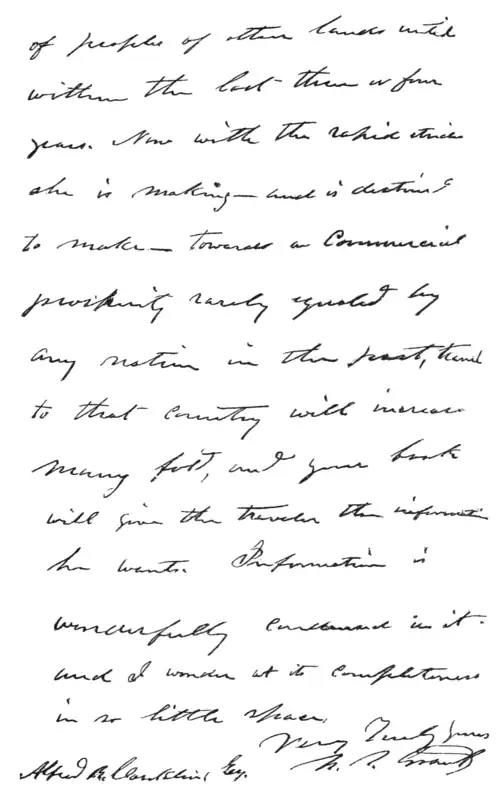 of peoples of other lands until
within the last three or four
years. Now with the rapid strides
she is making—and is destined
to make—towards a Commercial
prosperity rarely equaled by
any nation in the past, travel
to that country will increase
many fold, and your book
will give the traveler the information
he wants. Information is
wonderfully condensed in it.
and I wonder at its completeness
in so little space.
Very Truly yours
U. S. Grant
Alfred R. Conkling, Esq.